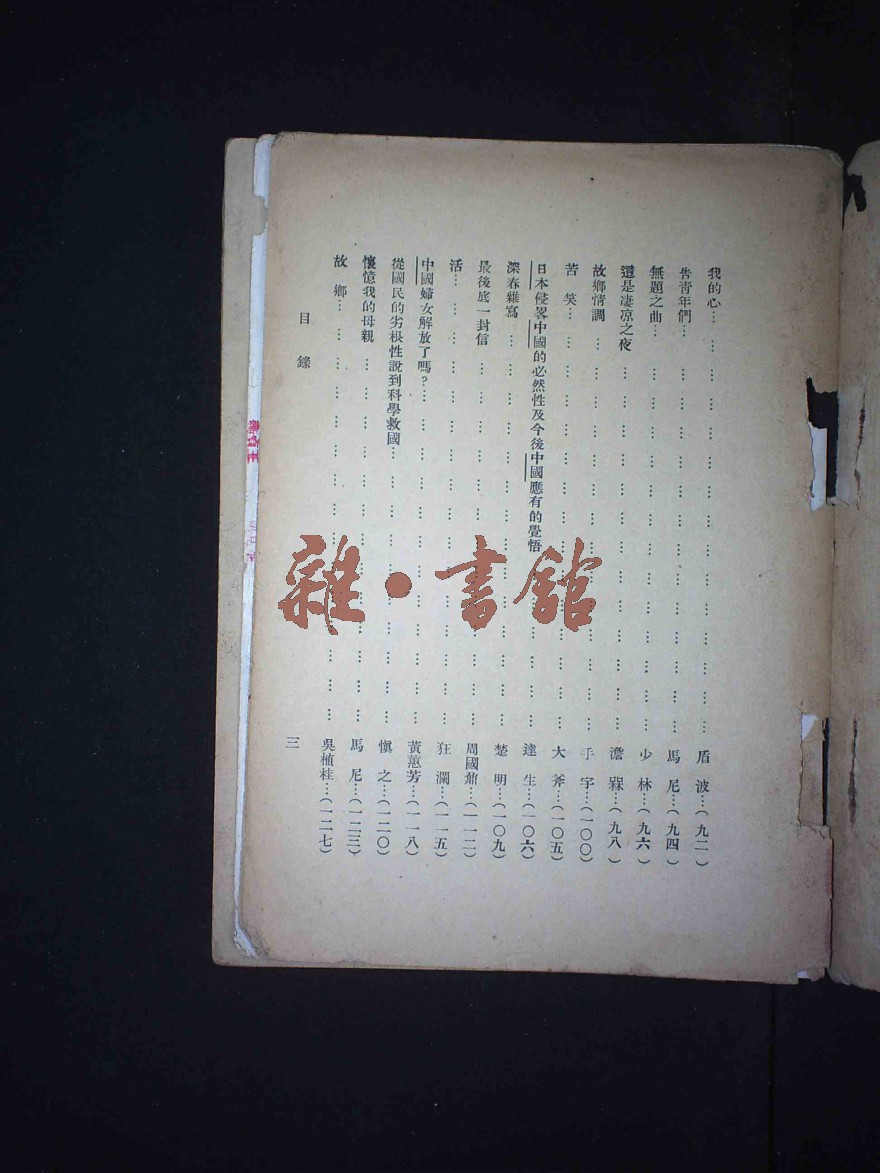 我的心… … … … … … … … … … … … … … … 盾 波…(九二)
告青年們… … … … … … … … … … … … … … … 馬 尼…(九四)
無題之曲… … … … … … … … … … … … … … … 少 林…(九六)
還是凄凉之夜 … … … … … … … … … … … … … … 澹 寀…(九八)
故鄉情調 … … … … … … … … … … … … … … … 手 宇…(一〇〇)
苦 笑… … … … … … … … … … … … … … … … 大 斧…(一〇五)
日本侵畧中國的必然性及今後中國應有的覺悟 … … … … … … … 達 生…(一〇六)
深春雜寫 … … … … … … … … … … … … … … … 楚 明…(一〇九)
最後底一封信 … … … … … … … … … … … … … … 周國鼐…(一一二)
活… … … … … … … … … … … … … … … … … 狂 瀾…(一一五)
中國婦女解放了嗎?… … … … … … … … … … … … … 黃蕙芳…(一一八)
從國民的劣根性說到科學救國… … … … … … … … … … … 愼 之…(一二〇)
懷憶我的母親 … … … … … … … … … … … … … … 馬 尼…(一二三)
故 鄉… … … … … … … … … … … … … … … … 吳植桂…(一二七)
目 錄
三
雜·書館